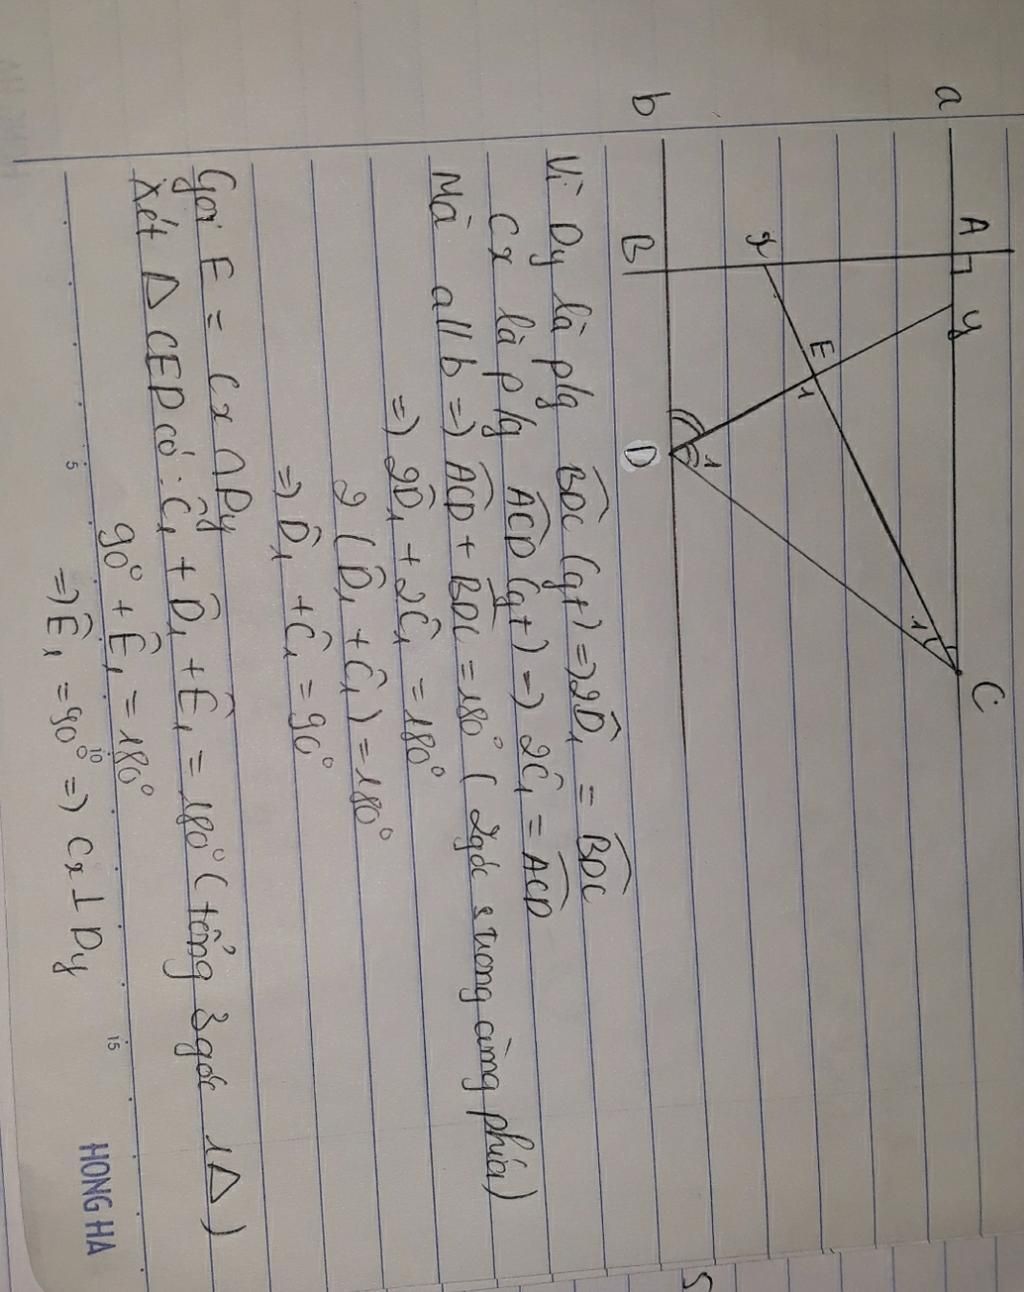 a A y C
x E 1 1
b B D 1
Vì Dy là p/g BDC (gt) => 2D̂₁ = BDC
Cx là p/g ACD (gt) => 2Ĉ₁ = ACD
Mà a // b => ACD + BDC = 180° ( 2 góc trong cùng phía)
=> 2D̂₁ + 2Ĉ₁ = 180°
2 (D̂₁ + Ĉ₁) = 180°
=> D̂₁ + Ĉ₁ = 90°
Gọi E = Cx ∩ Dy
Xét Δ CED có : Ĉ₁ + D̂₁ + Ê₁ = 180° ( tổng 3 góc 1 Δ )
90° + Ê₁ = 180°
=> Ê₁ = 90° => Cx ⊥ Dy
5 10 15
HONG HA